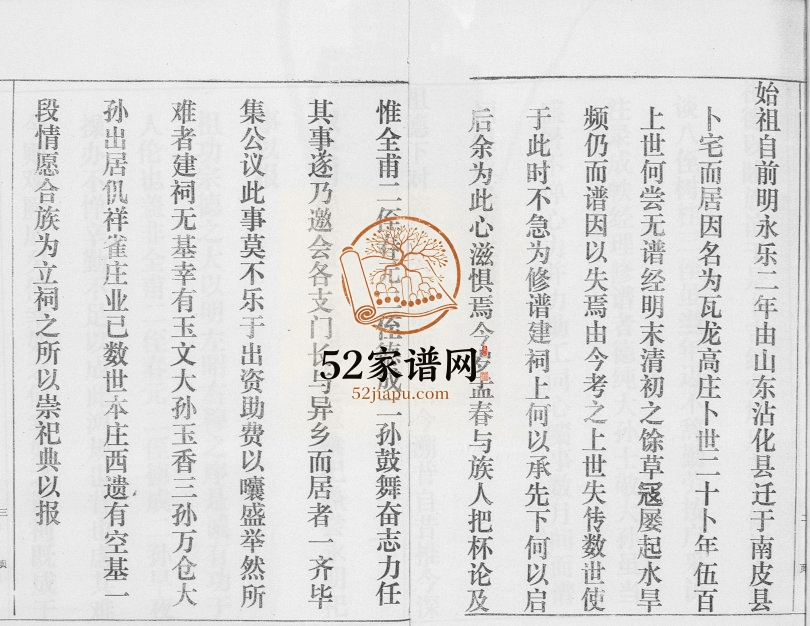 始祖自前明永乐二年由山东沾化县迁于南皮县
卜宅而居因名为瓦龙高庄卜世二十卜年伍百
上世何尝无谱经明末清初之馀草寇屡起水旱
频仍而谱因以失焉由今考之上世失传数世使
于此时不急为修谱建祠上何以承先下何以启
后余为此心滋惧焉今岁孟春与族人把杯论及
惟全甫二侄 成一孙鼓舞奋志力任
其事遂乃邀会各支门长与异乡而居者一齐毕
集公议此事莫不乐于出资助费以曩盛举然所
难者建祠无基幸有玉文大孙玉香三孙万仓大
孙出居仉祥雀庄业已数世本庄西遗有空基一
段情愿合族为立祠之所以崇祀典以报
52家谱网
52jiapu.com
二
页
三
页